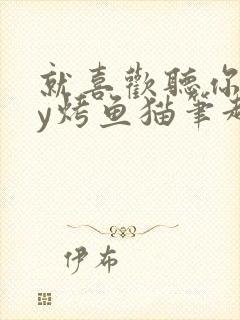 就喜歡聽你
y烤鱼猫筆趣
伊布